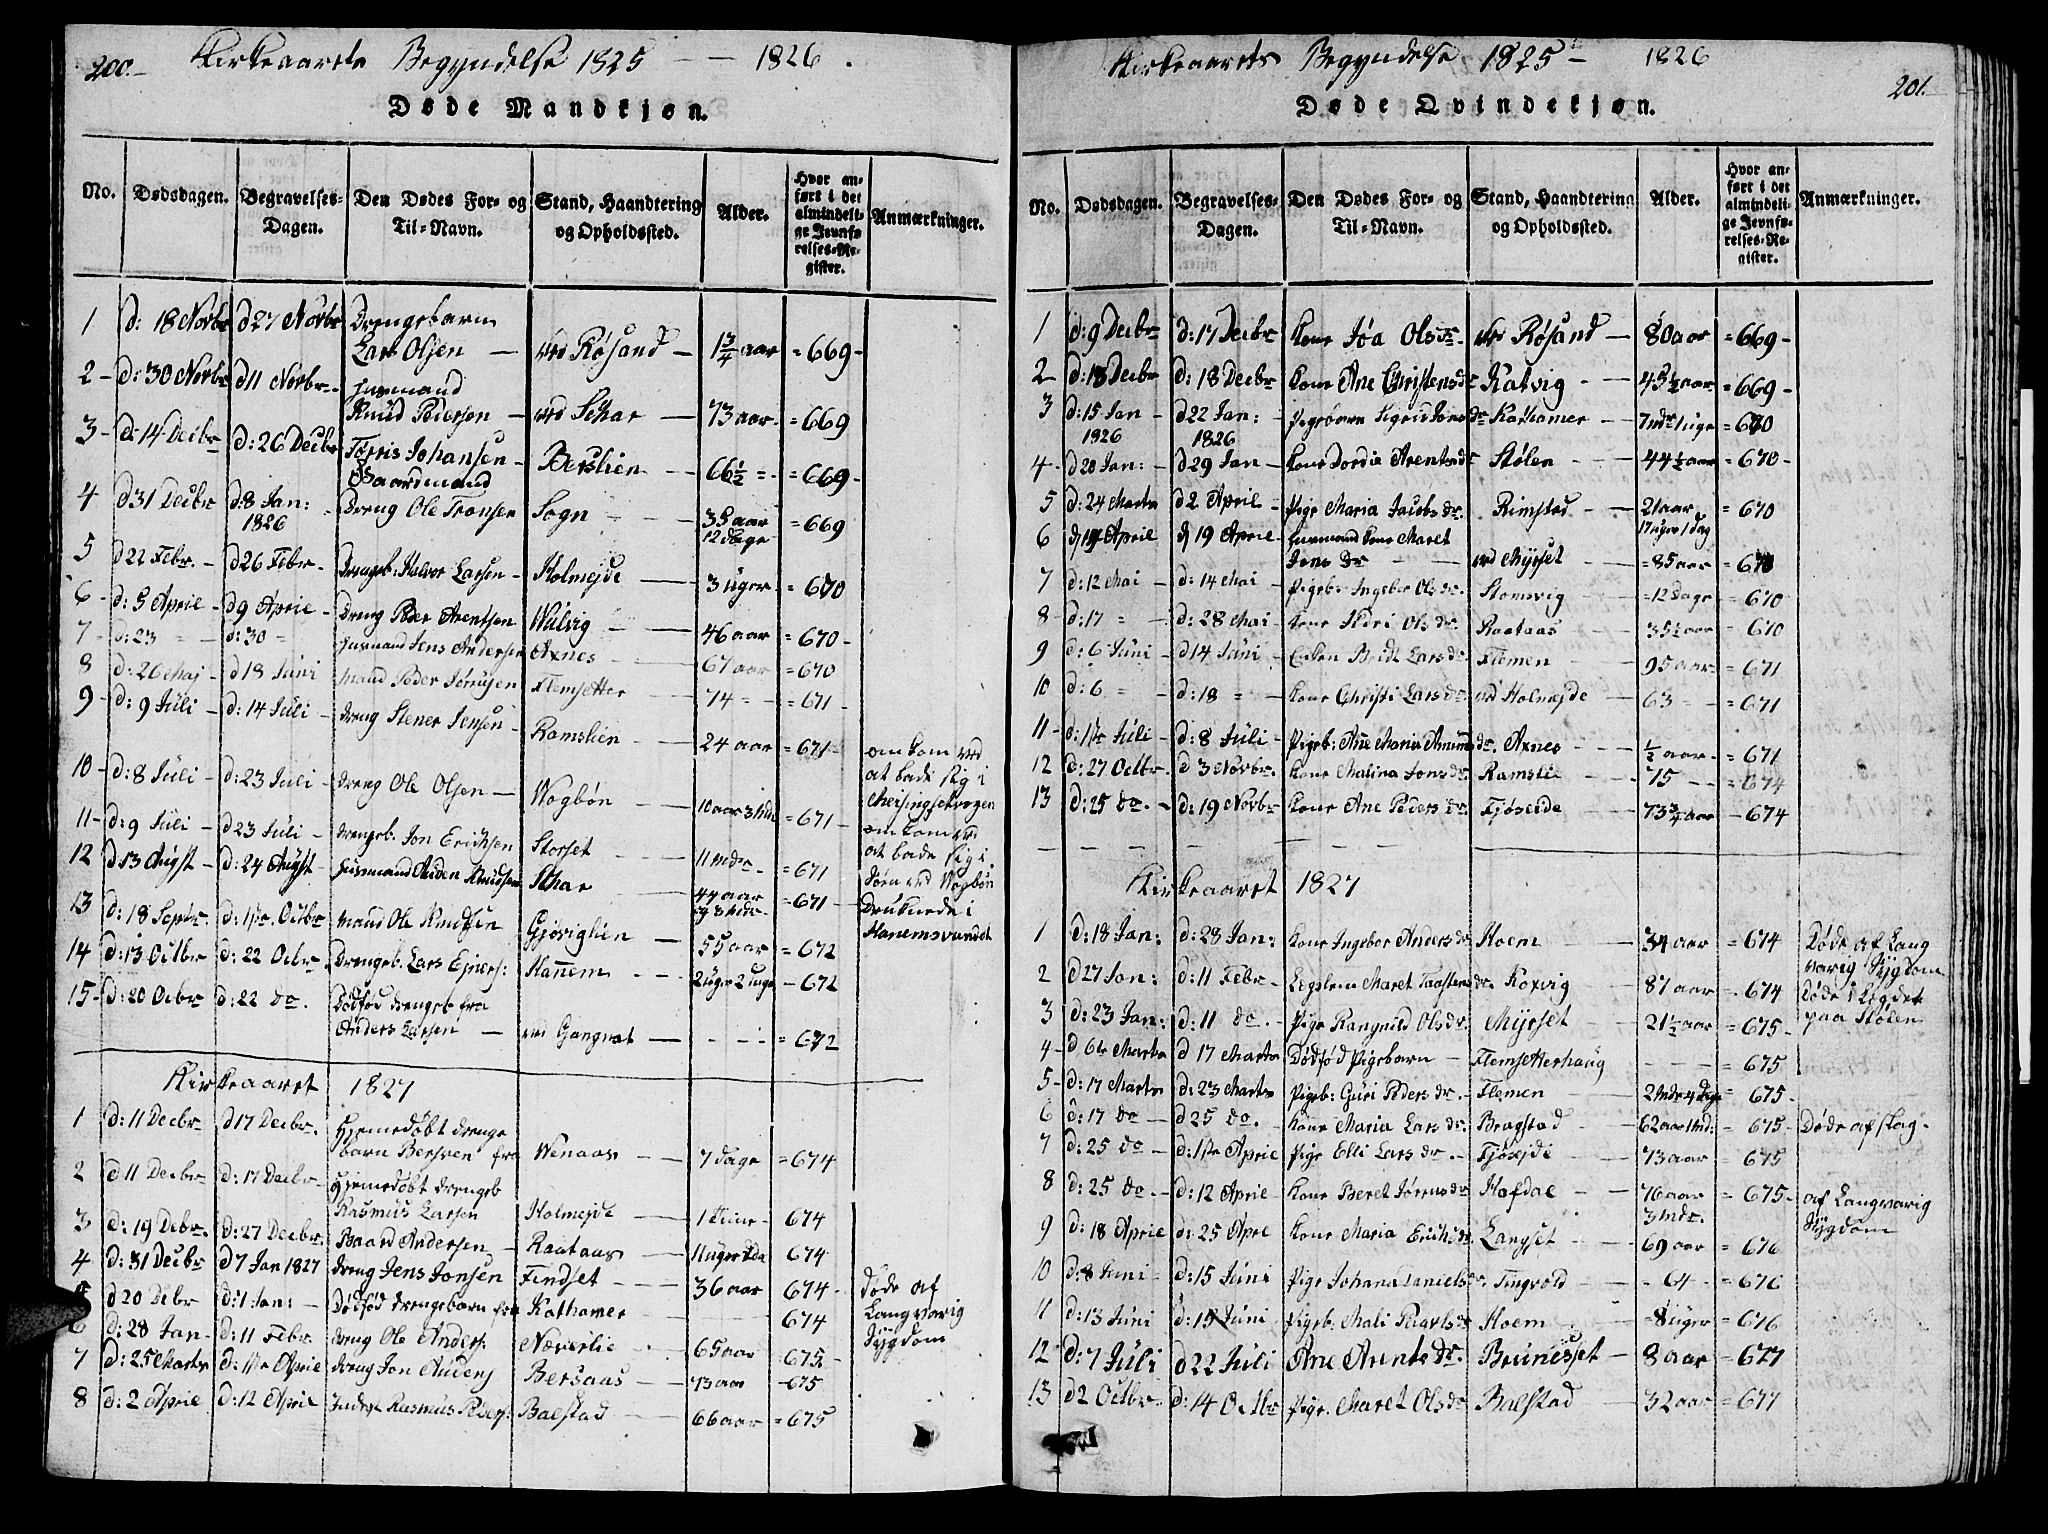 200.
Kirkeaarets Begyndelse 1825 — 1826.
Døde Mandkjøn.
No. Dødsdagen. Begravelses-Dagen. Den Dødes For- og Til-Navn. Stand, Haandtering og Opholdssted. Alder. Hvor anført i det almindelige Jevnførelses-Register. Anmærkninger.
1 d: 18 Novbr d 27 Novbr Drengebarn
Lars Olsen — ved Røsand — 1 3/4 aar = 669 -
2 - d: 30 Novbr d 11 Novbr - Huusmand
Knud Pedersen — ved Schar — 73 aar - = 669
3 - d: 14 Decbr d: 26 Decbr Johansen - Berslien — 66 1/2 = - = 669 -
Gaardmand
4 d 31 Decbr d: 8 Jan: 1826 Dreng Ole Tronsen Sogn — 35 aar 12 dage = 669
5 d 22 Febr. - d 26 Febr - Drengeb: Halvor Larsen - Holmejde — 3 uger - = 670
6 - d: 5 April - d 9 April - Dreng Peder Arentsen Walvig — 46 aar = 670 -
7 - d: 23 = - d: 30 = Huusmand Jens Andersen Axnes — 67 aar = 670
8 d: 26 Maj - d 18 Juni - Mand Peder Flemsetter — 74 = - = 671 -
9 - d: 9 Juli - d: 14 Juli - dreng Stener Jensen - Ramslien — 24 aar = 671 - omkom ved
10 - d: 8 Juli - d: 23 Juli - dreng Ole Olsen — Wogbøn — 10 aar 3 Mdr = 671 - at bade sig i
11 - d: 9 Juli - d 23 Juli - drengeb. Jon Erichsen Storset — 11 Mdr - = 671 omkom ved at bade sig i
12 d 13 Augst - d: 24 Augst - Huusmand Knudsen Schar — 44 aar og 3 Mdr - = 671 - ved Wogbøn
13 d: 18 Septbr. d: 1ste Octbr Mand Ole Knudsen Gjøviglien — 55 aar = 672 Druknede i
14 d: 13 Octbr d: 22 Octbr - Drengeb. Lars Hannem — 2 uger = 672
15 - d: 20 Octbr d: 22 do. Dødfød drengeb fra
Anders Larsen — ved Gangnat — - - - = 672
Kirkeaaret 1827
1 d: 11 Decbr d 17 Decbr. Hjemedøbt drenge
barn fra Wenaas — 7 dage = 674
2 d 11 Decbr d: 17 Decbr - Hjemedøbt drengeb
Rasmus Larsen Holmejde — 674
3 d: 19 Debr. d: 27 Decbr. Baard Andersen - Raataas — 11 uger 674
4 d: 31 Decbr d 7 Jan 1827 dreng Jens Jonsen Findset — 36 aar 674 - døde af
d 20 Debr d: 1 Jan: - Dødfød drengebarn fra Kathamer — 674 Langvarig
6 d: 28 Jan - d: 11 Febr. dreng Ole Anders: Næverlie — 65 aar - 675 Sygdom
7 d: 25 Marts d: 1ste April dreng Jon Anders Bersaas — 73 aar - 675
8 d: 2 April d: 12 April Rasmus Peders: Balstad — 66 aar = 675
201.
Kirkeaarets Begyndelse 1825 — 1826
Døde Qvindekjøn.
No. Dødsdagen. Begravelses-Dagen. Den Dødes For- og Til-Navn. Stand, Haandtering og Opholdssted. Alder. Hvor anført i det almindelige Jevnførelses-Register. Anmærkninger.
1 d: 9 Decbr d: 17 Decbr Kone Olsdr - ved Røsand — 80 aar = 669 -
2 d: 18 Decbr d: 18 Decbr Kone Ane Christensdr Katvig — 45 1/2 aar = 669 -
3 d: 15 Jan 1826 d 22 Jan: 1826 Pigebarn Sigrid Jonsdr Kathamer — 7 Mdr 1 uge = 670
4 - d 20 Jan: - d 29 Jan - Kone Dordie Arentsdr Stølen — 44 1/2 aar = 670 -
5 d: 24 Marts d 2 April - Pige Maria Jacobsdr. Rimstad — 21 aar 17 uger 1 dag = 670
6 d 14 April d 19 April - Huusmand Kone Maret
Jensdr — ved Myrset — = 85 aar = 670
7 d: 12 Mai - d: 14 Mai - Pigeb: Ingebor Olsdr. Stomsvig — = 12 dage - = 670
8 d: 17 = - d: 28 Mai - Kone Olsdr Raataas — 35 1/2 aar = 670
9 d: 6 Juni - d 14 Juni - Enken Larsdr. Flemen — 95 aar - = 671
10 d: 6 = - d: 18 = - Kone Christi Larsdr ved Holmejde — 63 - = 671
11 - d: 1ste Juli - d: 8 Juli - Pigeb: Ane Maria dr. Axnes — 1/2 aar - = 671
12 d: 27 Octbr. d 3 Novbr. Kone Malina Jonsdr. Ramslie — 75 — = 674
13 d: 25 do. - d: 19 Novbr Kone Ane Pedersdr. Fjøseide — 73 3/4 aar - 674
Kirkeaaret 1827
1 d: 18 Jan: d: 28 Jan: Kone Ingebor Andersdr Hoem — 34 aar = 674 Døde af Lang
varig Sygdom
2 d 27 Jan: d: 11 Febr - Maret dr. Koxvig — 87 aar - 674 Døde i Legdet
paa Stølen
3 d: 23 Jan: d: 11 do. - Pige Rangnild Olsdr. Myrset — 21 1/2 aar = 675 -
4 - d 6te Marts d 17 Marts Dødfød Pigebarn - Flemsetterhaug — - - - = 675
5 - d: 17 Marts d: 23 Marts Pigeb: Guri Pedersdr. - Flemen — 2 Mdr 4 dage = 675 -
6 d: 17 do - d 25 do. - Kone Maria Larsdr. Bragstad — 62 aar 1 Md: = 675 - Døde af slag -
7 d: 25 do - d: 1ste April Pige Elli Larsdr - Fjøsejde — 73 aar = 675
8 d: 25 do. - d: 12 April - Kone Beret dr Hafdal — 76 aar 3 Mdr. = 675 - af Langvarig
Sygdom
9 d: 18 April d: 25 Aprl - Kone Maria Erichsdr. Langset — 69 aar = 676
10 d: 8 Juni - d: 15 Juni Pige Johana Danielsdr. Tingvold — - 64 - = 676
11 d: 13 Juni d: 15 Juni Pigeb: Mali dr Hoem — 8 uger = 676
12 d: 7 Juli d 22 Juli Ane Arentsdr. Brunsset — 8 aar = 677
13 d 2 Octbr. d: 14 Octbr Pige. Maret Olsdr Balstad — 32 aar = 677